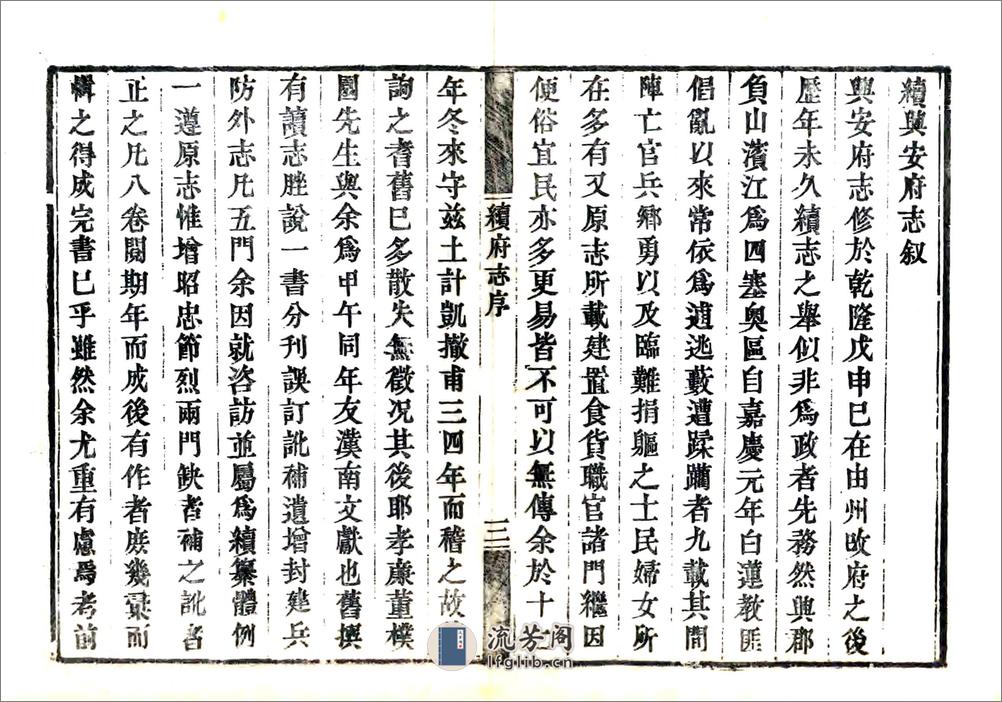 續興安府志叙
興安府志修於乾隆戊申已在由州改府之後
歷年未久續志之舉似非為政者先務然興郡
負山濱江為四塞奧區自嘉慶元年白蓮教匪
倡亂以來常依為逋逃藪遭蹂躪者九載其間
陣亡官兵鄉勇以及臨難捐軀之士民婦女所
在多有又原志所載建置食貨職官諸門繼因
便俗宜民亦多更易皆不可以無傳余於十
續府志序
三
年冬來守兹土計凱撤甫三四年而稽之故
詢之耆舊已多散失無徵况其後耶孝廉董樸
園先生與余為甲午同年友漢南文獻也舊撰
有讀志脞說一書分刊誤訂訛補遺增封建兵
防外志凡五門余因就咨訪並屬為續纂體例
一遵原志惟增昭忠節烈兩門缺者補之訛者
正之凡八卷閱期年而成後有作者庶幾彙而
輯之得成完書已乎雖然余尤重有慮焉考前
流芳阁
lfglib.cn